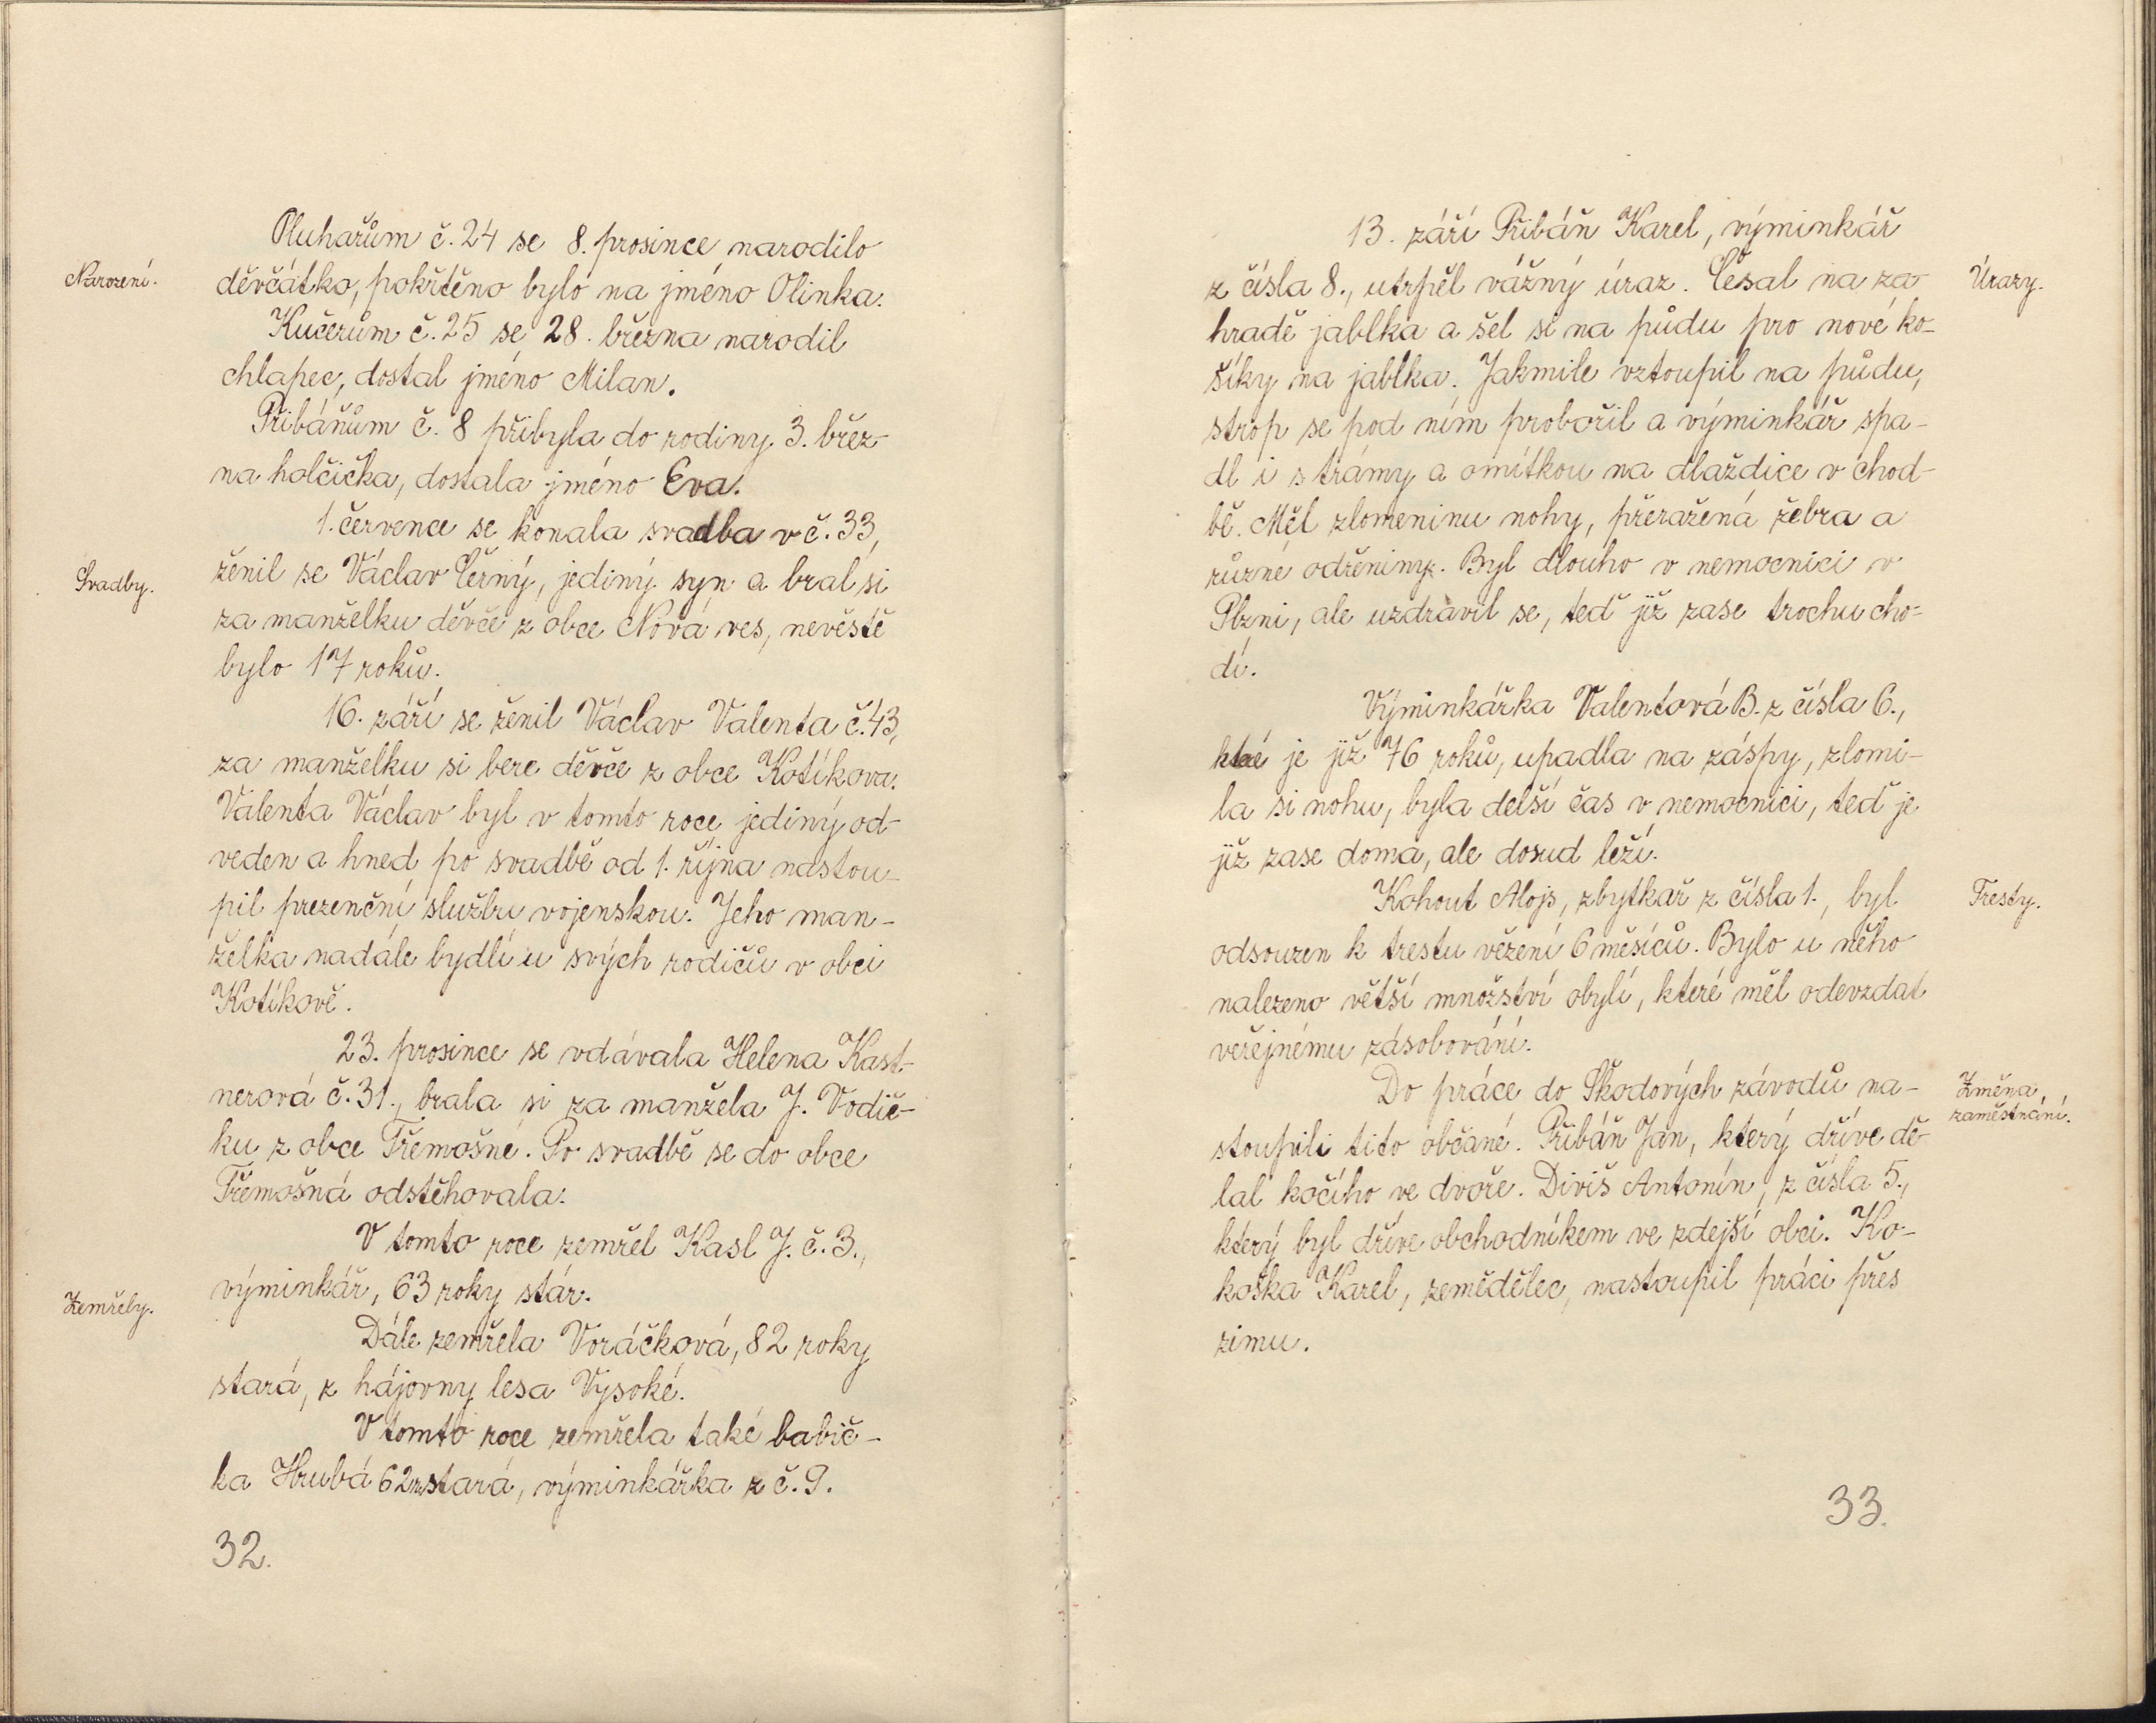 Narození.
Pluhařům č. 24 se 8. prosince narodilo
děvčátko, pokřtěno bylo na jméno Olinka.
Kučerům č. 25 se 28. března narodil
chlapec, dostal jméno Milan.
Přibáňům č. 8 přibyla do rodiny 3. břez-
na holčička, dostala jméno Eva.
1. července se konala svadba v č. 33,
Svadby.
ženil se Václav Černý, jediný syn a bral si
za manželku děvče z obce Nová ves, nevěstě
bylo 17 roků.
16. září se ženil Václav Valenta č. 43,
za manželku si bere děvče z obce Kotíkova.
Valenta Václav byl v tomto roce jediný od-
veden a hned po svadbě od 1. října nastou-
pil prezenční službu vojenskou. Jeho man-
želka nadále bydlí u svých rodičů v obci
Kotíkově.
23. prosince se vdávala Helena Kast-
nerová č. 31., brala si za manžela J. Vodič-
ku z obce Třemošné. Po svadbě se do obce
Třemošná odstěhovala.
V tomto roce zemřel Kasl J. č. 3.,
Zemřely.
výminkář, 63 roky stár.
Dále zemřela Voráčková, 82 roky
stará, z hájovny lesa Vysoké.
V tomto roce zemřela také babič-
ka Hrubá 62 r. stará, výminkářka z č. 9.
32.
13. září Přibáň Karel, výminkář
z čísla 8., utrpěl vážný úraz. Česal na za-
Úrazy.
hradě jablka a šel si na půdu pro nové ko-
šíky na jablka. Jakmile vztoupil na půdu,
strop se pod ním probořil a výminkář spa-
dl i s trámy a omítkou na dlaždice v chod-
bě. Měl zlomeninu nohy, přeražená žebra a
různé odřeniny. Byl dlouho v nemocnici v
Plzni, ale uzdravil se, teď již zase trochu cho-
dí.
Výminkářka Valentová B. z čísla 6.,
které je již 76 roků, upadla na záspy, zlomi-
la si nohu, byla delší čas v nemocnici, teď je
již zase doma, ale dosud leží.
Kohout Alojs, zbytkař z čísla 1., byl
Tresty.
odsouzen k trestu vězení 6 měsíců. Bylo u něho
nalezeno větší množství obylí, které měl odevzdat
veřejnému zásobování.
Do práce do Škodových závodů na-
Změna
zaměstnání.
stoupili tito občané. Přibáň Jan, který dříve dě-
lal kočího ve dvoře. Diviš Antonín, z čísla 5.,
který byl dříve obchodníkem ve zdejší obci. Ko-
koška Karel, zemědělec, nastoupil práci přes
zimu.
33.